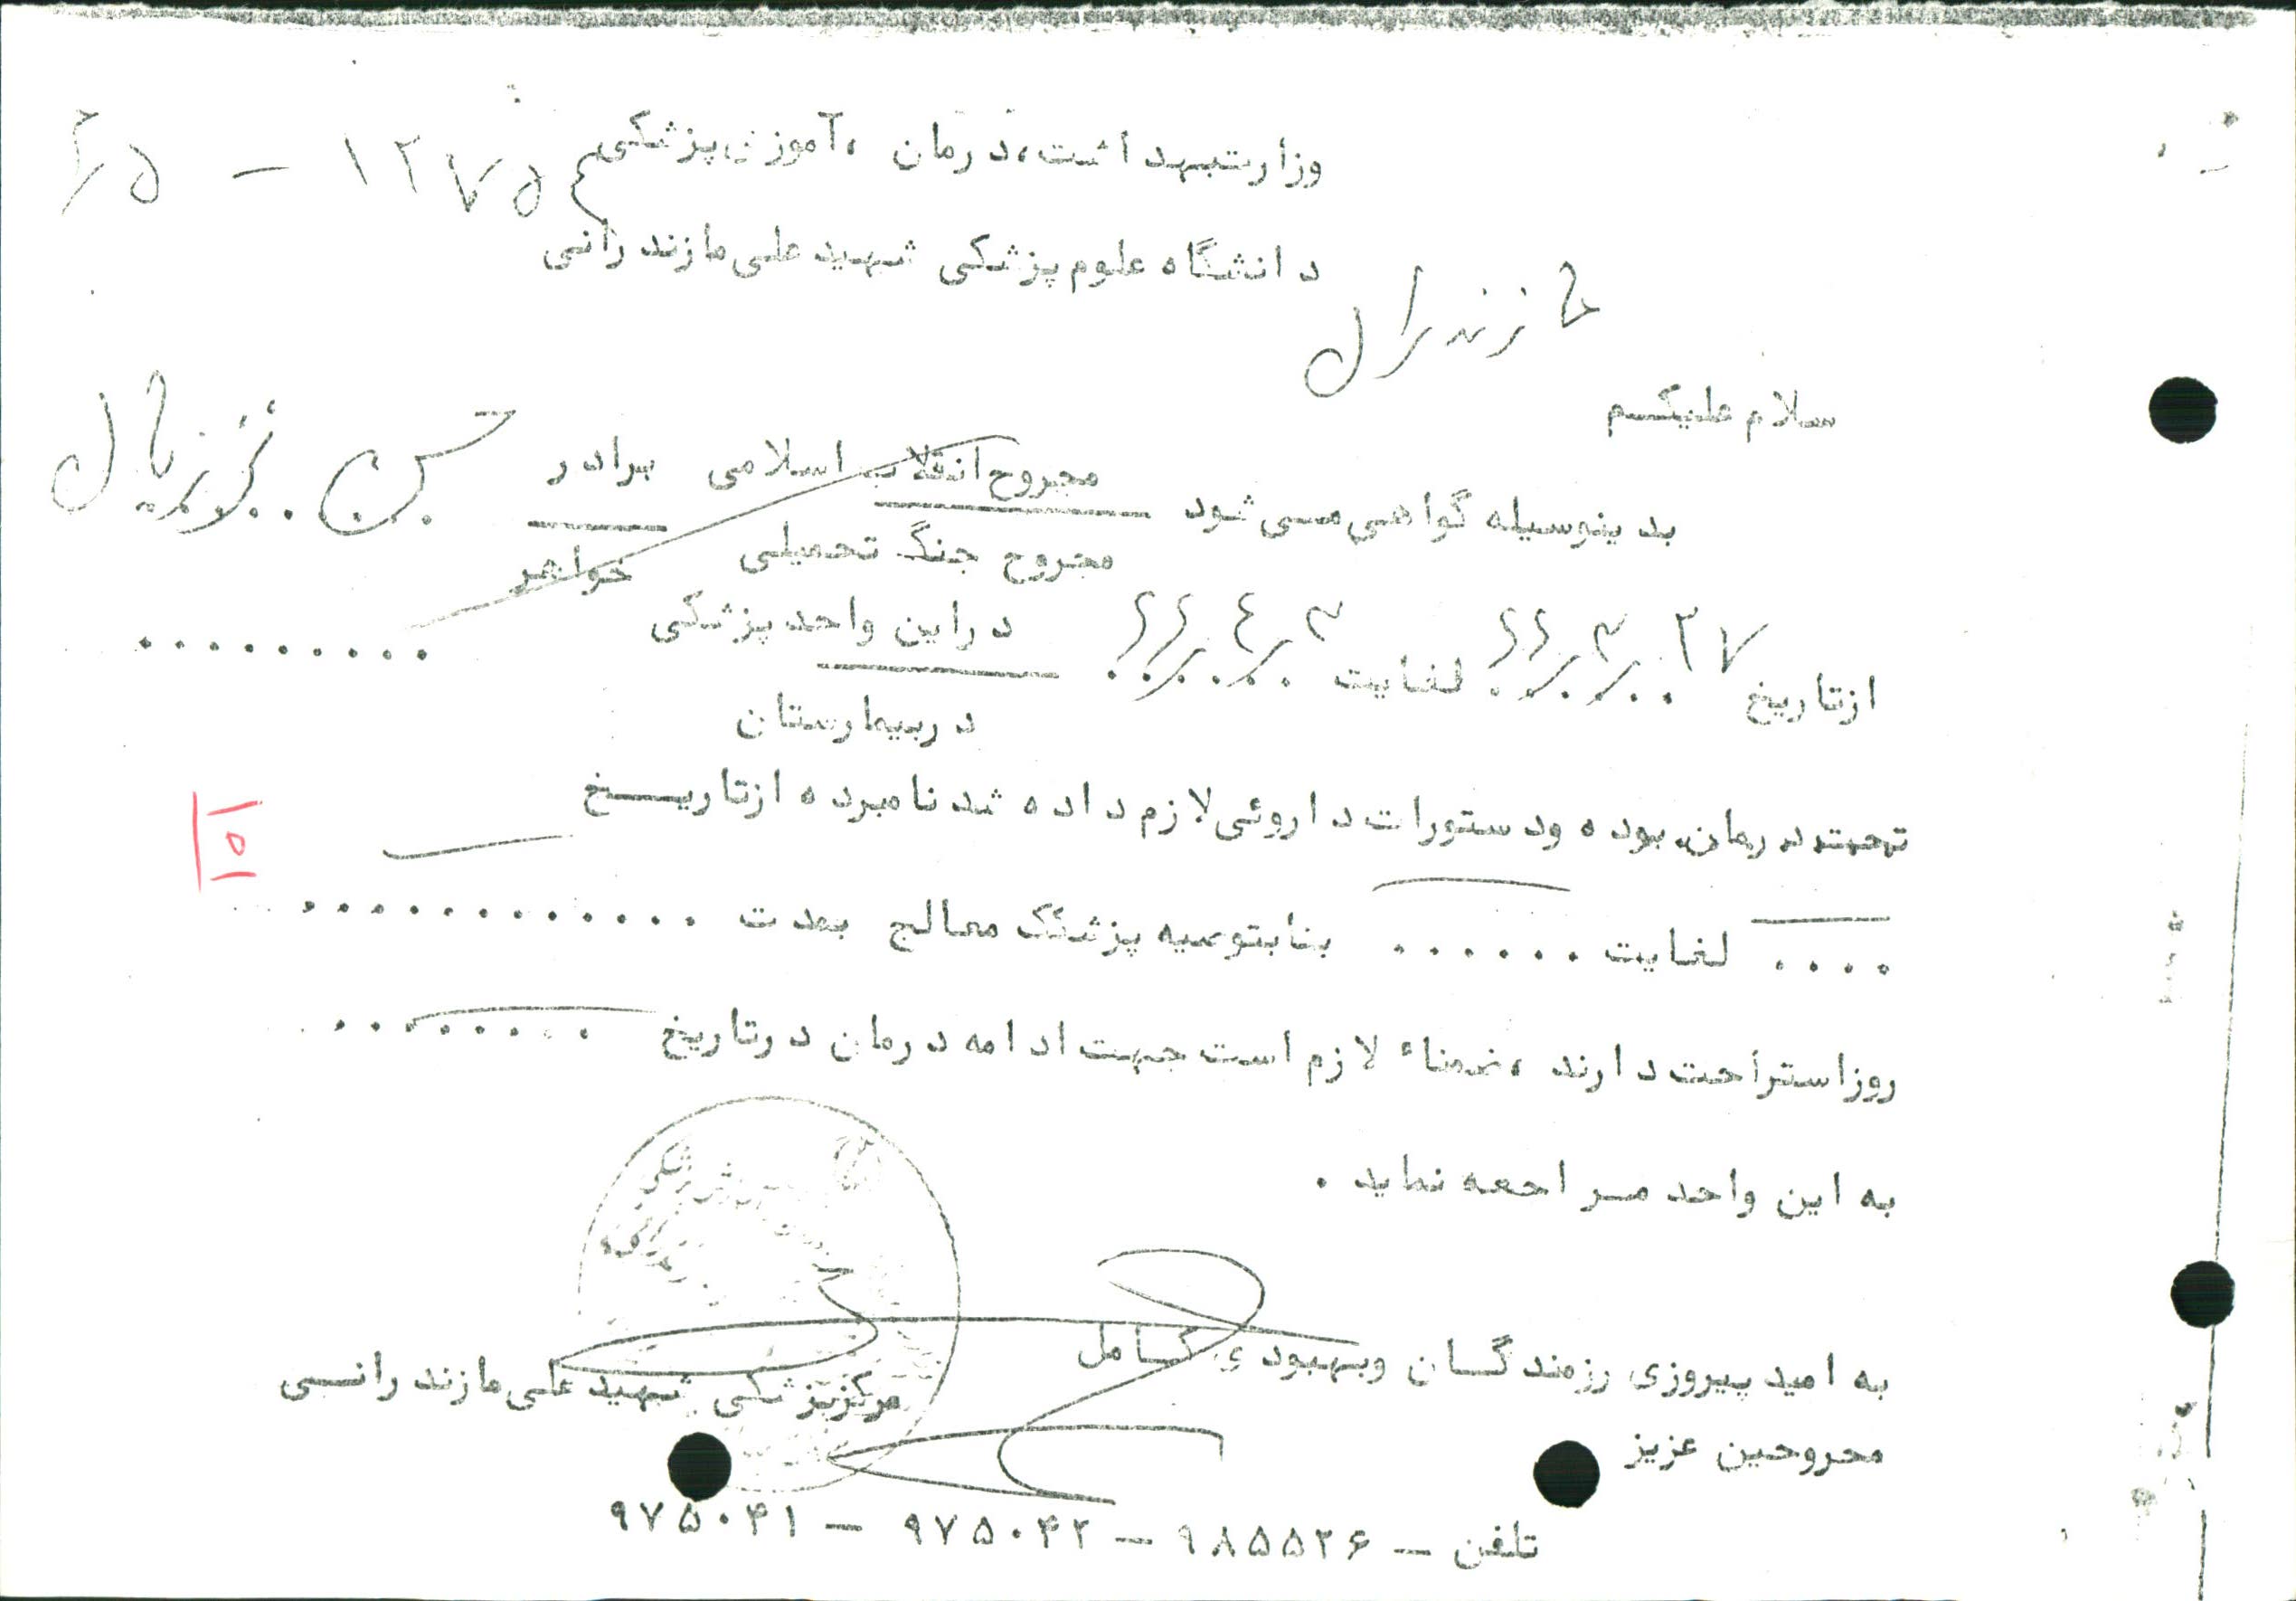 وزارت بهداشت، درمان ، آموزش پزشکی
۱۲۷۵ –
دانشگاه علوم پزشکی شهید علی مازندرانی
مازندران
سلام علیکم
بدینوسیله گواهی می شود مجروح انقلاب اسلامی برادر حسن
مجروح جنگ تحمیلی خواهر
ازتاریخ ۲۷/۳/۶۶ لغایت ۳/۴/۶۶ دراین واحد پزشکی ..........
دربیمارستان
تحت درمان بوده ودستورات داروئی لازم داده شد نامبرده ازتاریخ
.... لغایت ...... بنابتوصیه پزشک معالج بمدت ............
روزاستراحت دارند ، ضمناً لازم است جهت ادامه درمان درتاریخ ........
به این واحد مراجعه نماید .
به امید پیروزی رزمندگان وبهبودی کامل
مجروحین عزیز
مرکزپزشکی شهید علی مازندرانی
تلفن – ۹۸۵۵۲۶ – ۹۷۵۰۴۲ – ۹۷۵۰۴۱